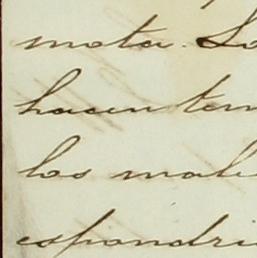 mota. Lo
hacen tem
los male
espondri